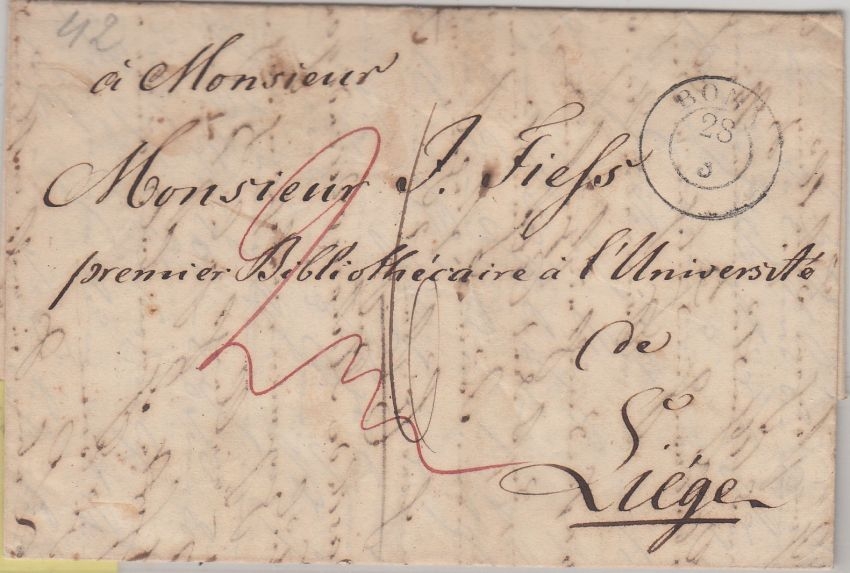 42
à Monsieur
BONN
28
3
Monsieur J. Fiess
premier Bibliothécaire à l'Université
de
Liége